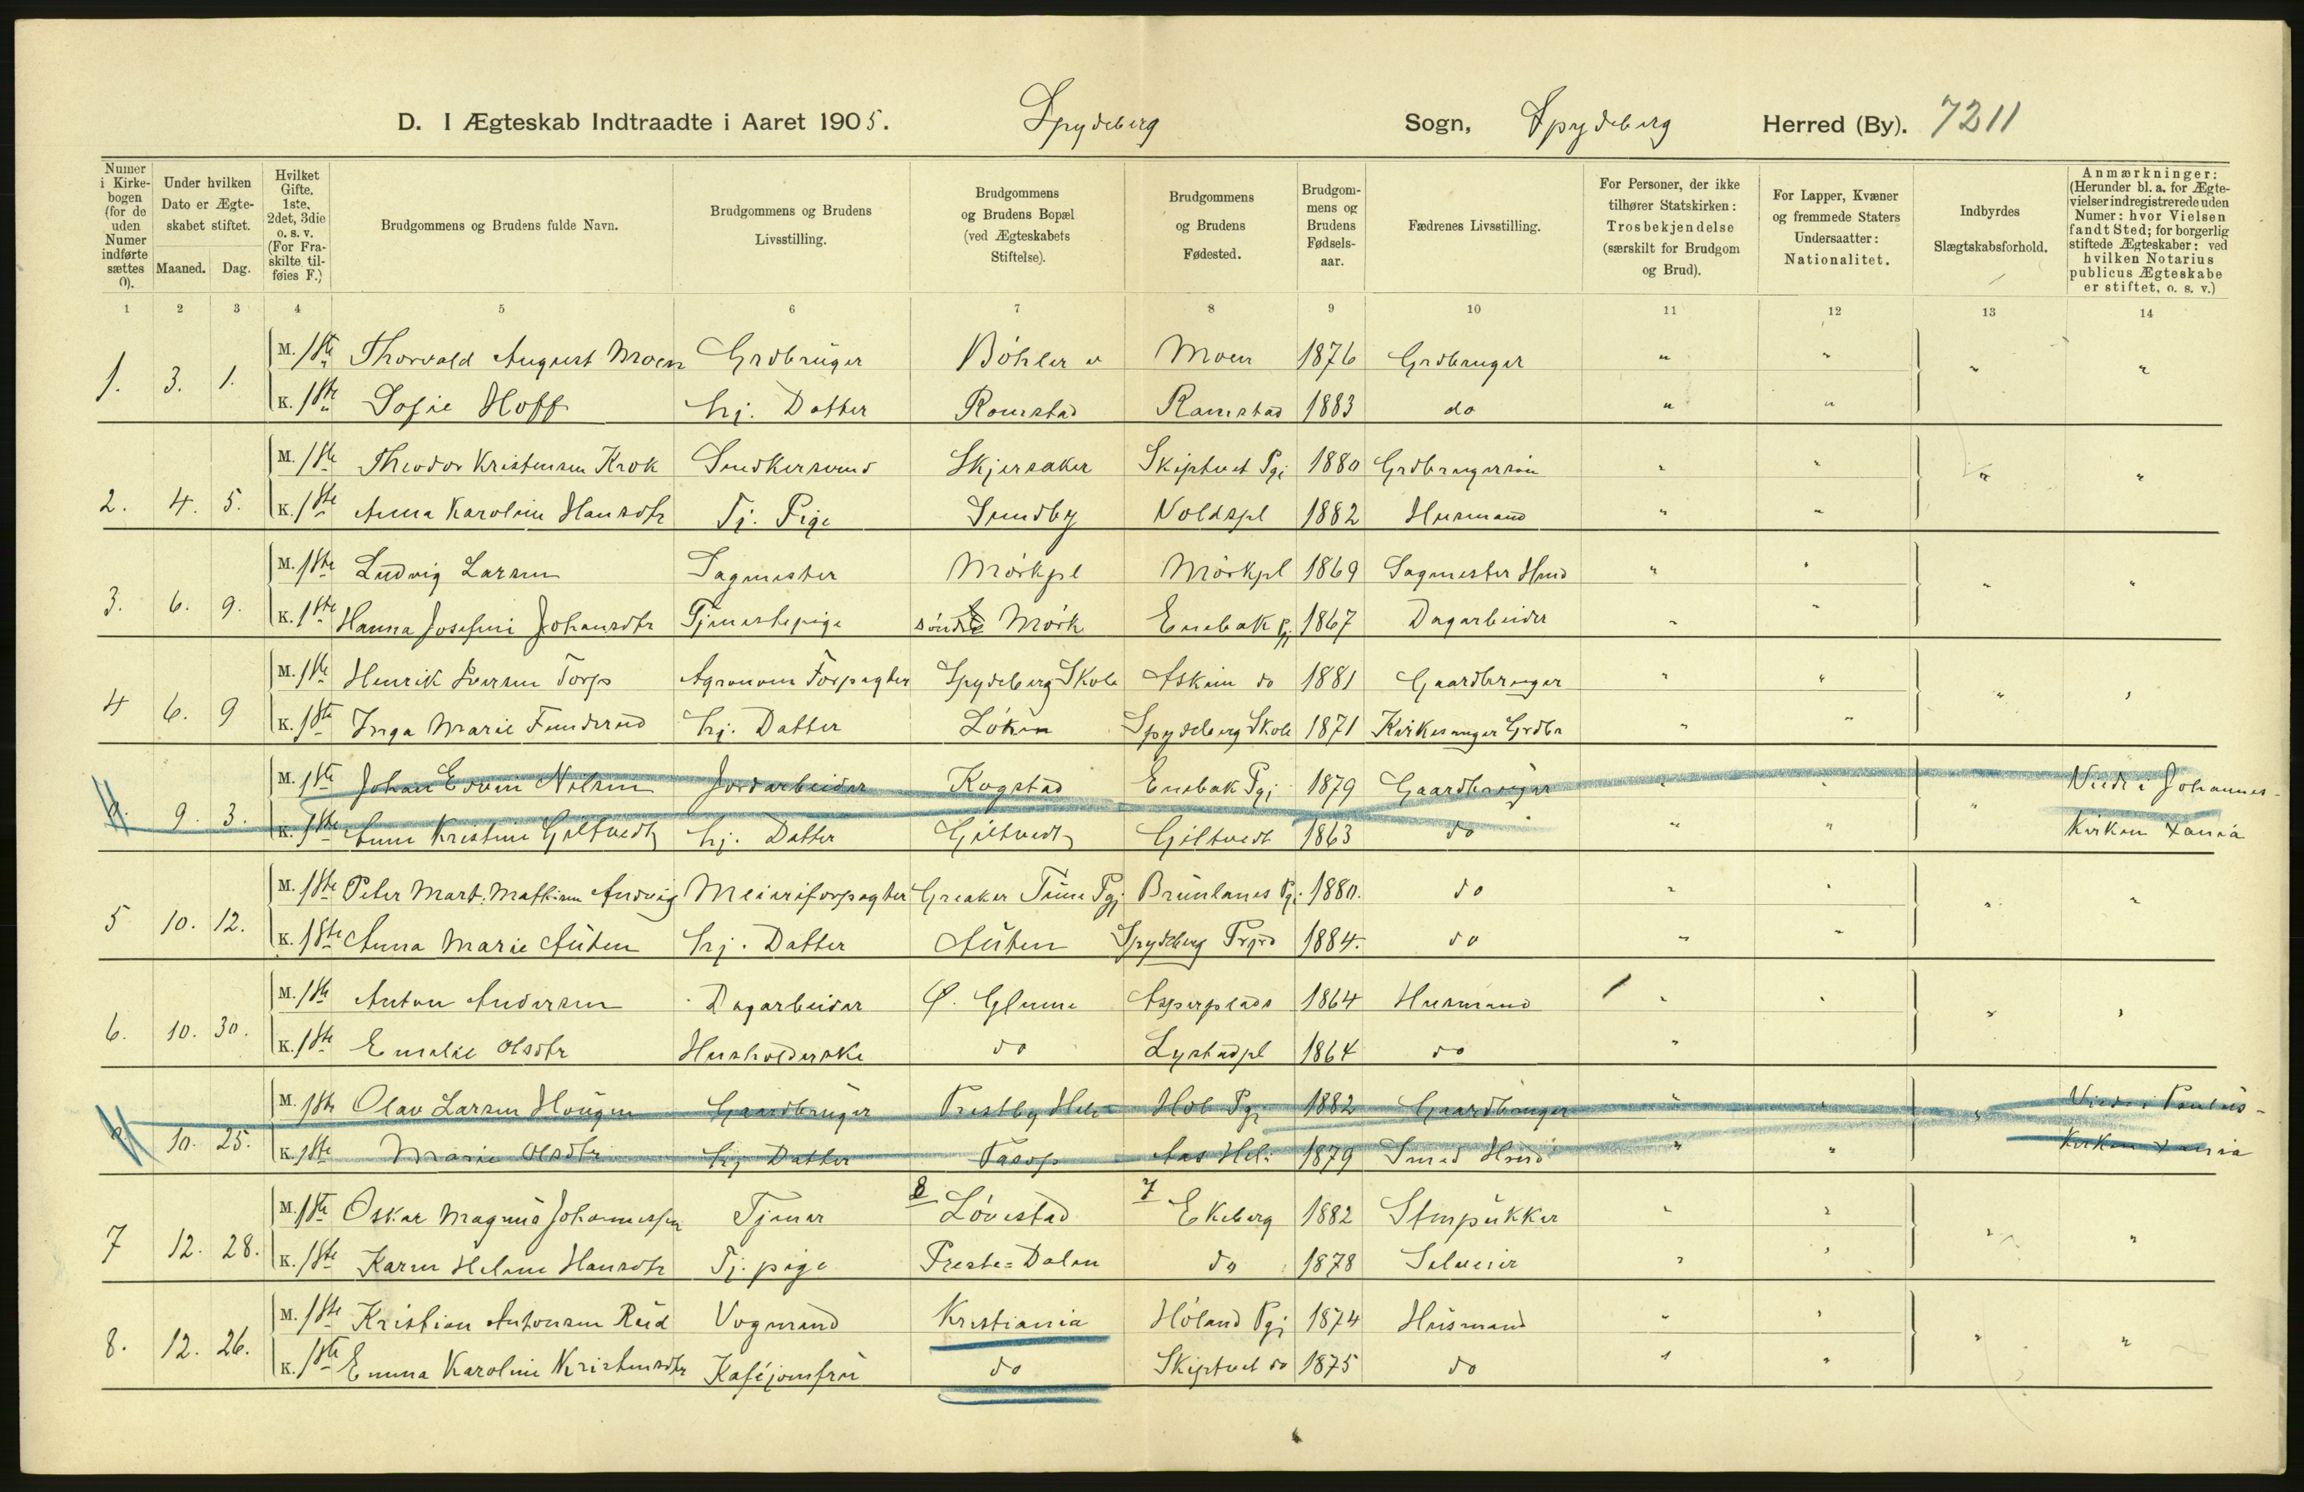 D. I Ægteskab Indtraadte i Aaret 1905. Spydeberg Sogn, Spydeberg Herred (By). 7211
Numer i Kirkebogen (for de uden Numer indførte sættes 0).
Under hvilken Dato er Ægteskabet stiftet.
Maaned. Dag.
Hvilket Gifte. 1ste, 2det, 3die o. s. v. (For Fraskilte tilføies F.)
Brudgommens og Brudens fulde Navn.
Brudgommens og Brudens Livsstilling.
Brudgommens og Brudens Bopæl (ved Ægteskabets Stiftelse).
Brudgommens og Brudens Fødested.
Brudgommens og Brudens Fødselsaar.
Fædrenes Livsstilling.
For Personer, der ikke tilhører Statskirken: Trosbekjendelse (særskilt for Brudgom og Brud).
For Lapper, Kvæner og fremmede Staters Undersaatter: Nationalitet.
Indbyrdes Slægtskabsforhold.
Anmærkninger: (Herunder bl. a. for Ægtevielser indregistrerede uden Numer: hvor Vielsen fandt Sted; for borgerlig stiftede Ægteskaber: ved hvilken Notarius publicus Ægteskabe er stiftet, o. s. v.)
1 2 3 4 5 6 7 8 9 10 11 12 13 14
1. 3. 1. M. 1ste Thorvald August Moen Grdbruger Böhler Moen 1876 Grdbruger " " " "
K. 1ste Sofie Hoff hj. Datter Romstad Ramstad 1883 do " "
2. 4. 5. M. 1ste Theodor Kristensen Krok Snedkersvend Skjersaker Skiptvet Pgj 1880 Grdbrugersön " " " "
K. 1ste Anna Karoline Hansdtr Tj. Pige Sundby Voldspl 1882 Husmand " "
3. 6. 9. M. 1ste Ludvig Larsen Sagmester Mörkpl Mörkpl 1869 Sagmester Hmd " " " "
K. 1ste Hanna Josefine Johansdtr Tjenestepige söndre Mörk Enebak Pgj 1867 Dagarbeider " "
4 6. 9 M. 1ste Henrik Iversen Torp Agronom Forpagter Spydeberg Skole Askim do 1881 Gaardbruger " " " "
K. 1ste Inga Marie Funderud hj. Datter Löken Spydeberg Skole 1871 Kirkesanger Grdbr " "
0. 9. 3. M. 1ste Johan Edvin Nilsen Jordarbeider Kogstad Enebak Pgj 1879 Gaardbruger " " " Viede i Johannes-
K. 1ste Anne Kristine Giltvedt hj. Datter Giltvedt Giltvedt 1863 do " " Kirken Xania
5 10. 12. M. 1ste Peter Mart. Mathisen Andvig Meieriforpagter Greaker Tune Pgj Brunlanes Pgj. 1880. do " " " "
K. 1ste Anna Marie Auten hj. Datter Auten Spydeberg Prgrd 1884. do " "
6. 10. 30. M. 1ste Anton Andersen Dagarbeider Ö. Glume Asperplads 1864 Husmand " " " "
K. 1ste Emelie Olsdtr Husholderske do Lystadpl 1864 do "
0. 10. 25. M. 1ste Olav Larsen Haugen Gaardbruger Prestby Heli Hob Pgj 1882 Gaardbruger " " " Viede i Paulus-
K. 1ste Marie Olsdtr hj Datter Taasop Aas Heli 1879 Smed Hmd " " Kirken Xania
7 12. 28. M. 1ste Oskar Magnus Johannessen Tjener 8 Lövestad 7 Ekeberg 1882 Stenpukker " " " "
K. 1ste Karen Helene Hansdtr Tj. pige Preste=Dalen do 1878 Selveier " "
8. 12. 26. M. 1ste Kristian Antonsen Rud Vogmand Kristiania Höland Pgj 1874 Husmand " " " "
K. 1ste Emma Karoline Kristensdtr Kaféjomfru do Skiptvet do 1875 do " "